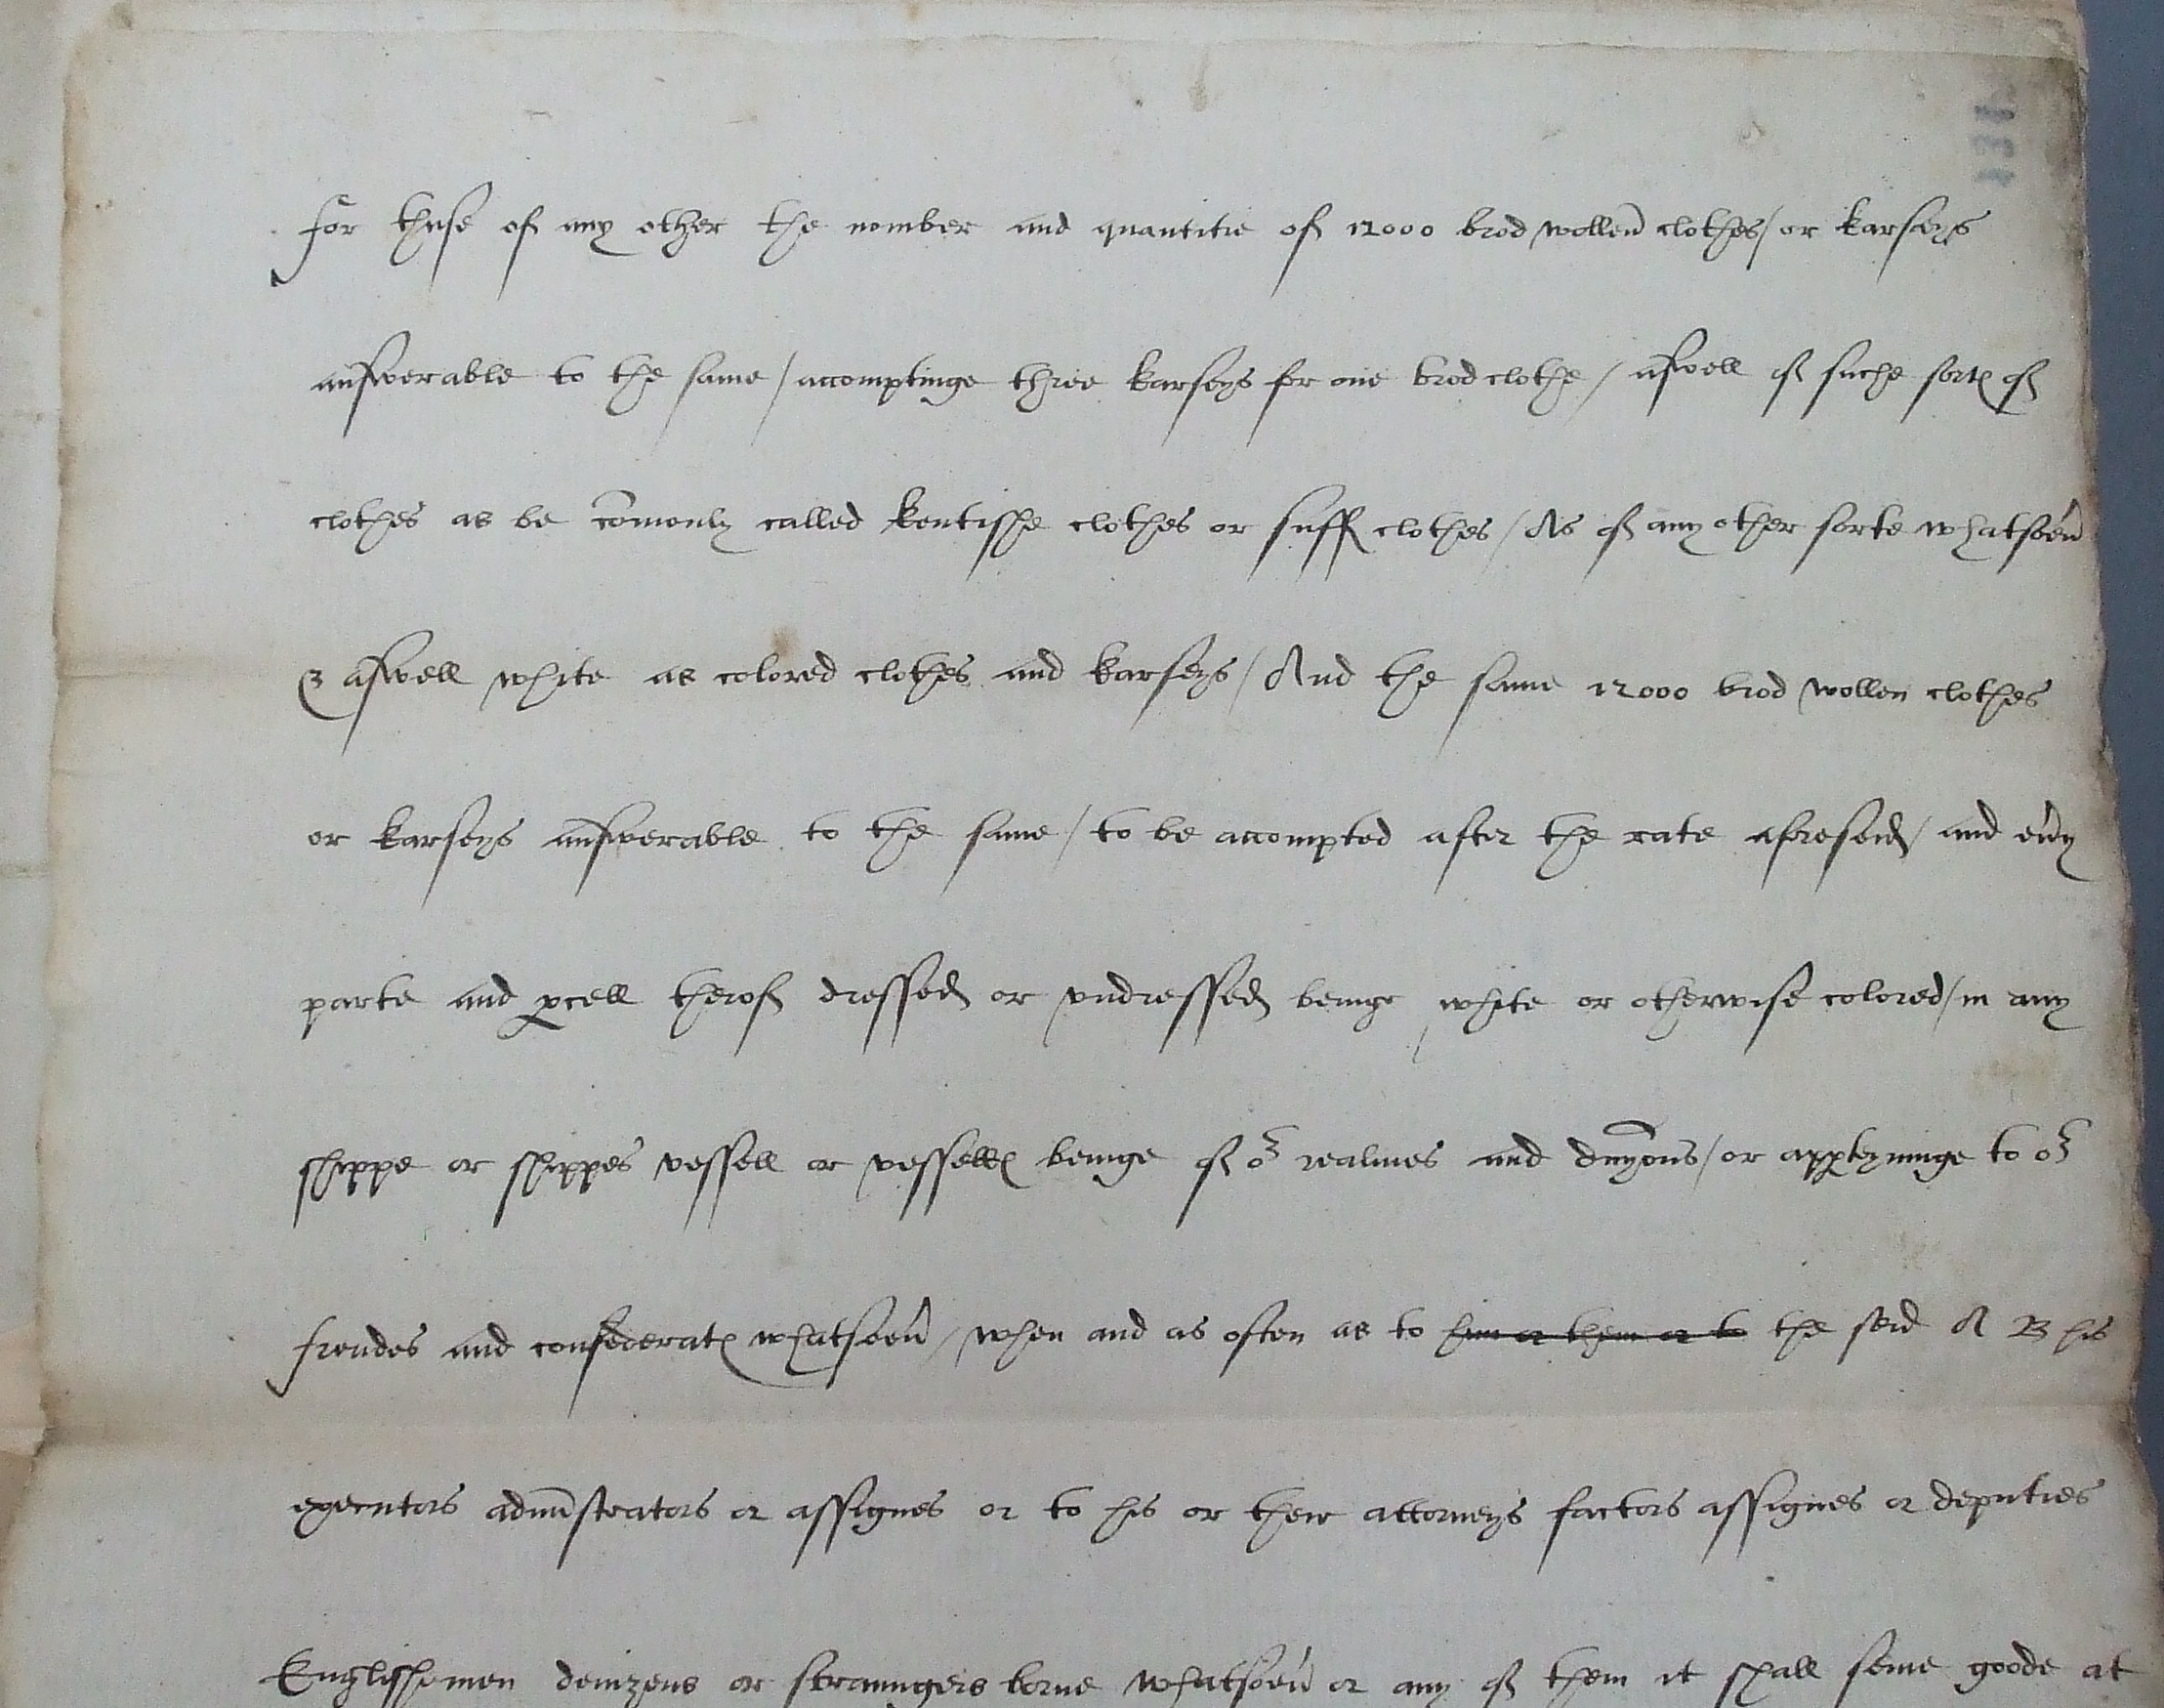 131
for thuse of any other the nomber and quantitie of 12000 brod wollen clothes / or karseys
answerable to the same / accomptinge three karseys for one brod clothe / aswell of suche sort of
clothes as be comonly called kentisshe clothes or suff clothes / As of any other sorte whatsoeu
& aswell white as colored clothes and karseys / And the same 12000 brod wollen clothes
or karseys answerable to the same / to be accompted after the rate aforeseid / and eu'y
parte and pcell therof dressed or vndressed beinge white or otherwise colored / in any
shippe or shippes vessell or vessells beinge of or realmes and dnyons / or appteyninge to or
frendes and confederats whatsoeu / when and as often as to him or them or to the seid A B his
executors admistrators or assignes or to his or their attorneys factors assignes or deputies
Englisshemen denizens or straungers borne whatsoeu or any of them it shall seme goode at